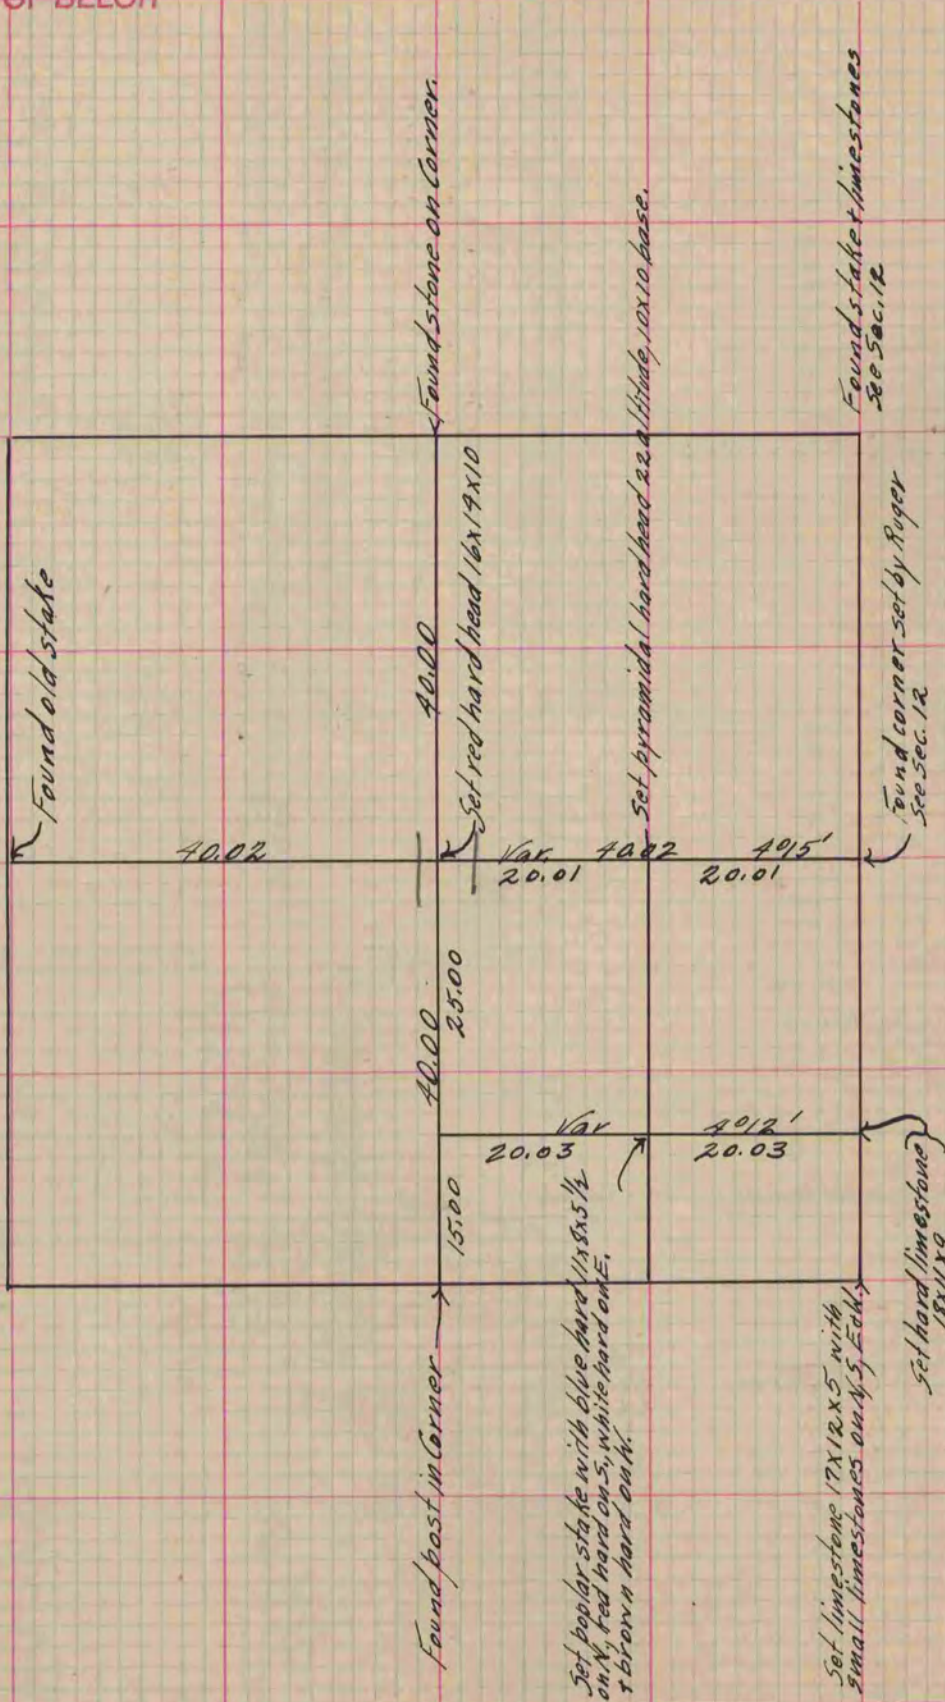 OF BELOIT
Found old stake
40.02
Found stone on Corner.
40.00
Set red hard head 16x14x10
Var. 40.02 4°15'
20.01
20.01
Set pyramidal hard head 22 altitude, 10x10 base.
Found stake & limestones
see Sec. 12
Found corner set by Ruger
see Sec. 12
40.00
25.00
15.00
Var 4°12'
20.03
20.03
Found post in Corner
Set poplar stake with blue hard 11x8x5½
on N, red hard on S, white hard on E.
& brown hard on W.
Set limestone 17x12x5 with
small limestones on N, S, E & W.
Set hard limestone
18x11x9